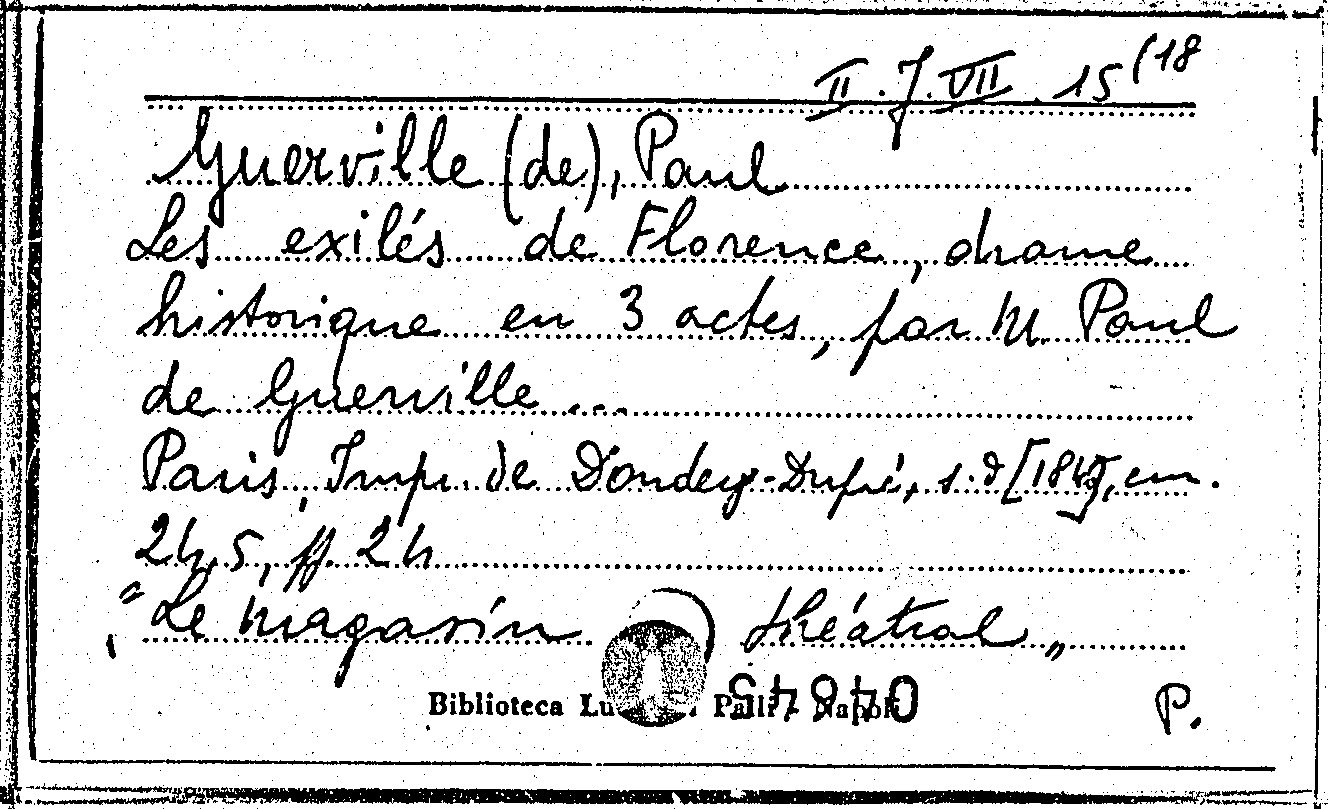 II. J. VII . 15 (18
Guerville (de), Paul
Les exilés de Florence, drame
historique en 3 actes, par M. Paul
de Guerville ...
Paris, Impr. de Dondey-Dupré, s.d. cm.
24,5, pp. 24
"Le magasin théatral„
Biblioteca
P.